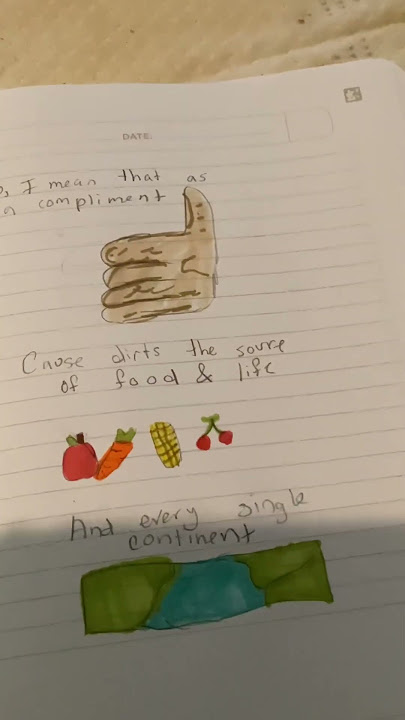 DATE:
I mean that as
compliment
Cause dirts the sourse
of food & life
And every single
continent